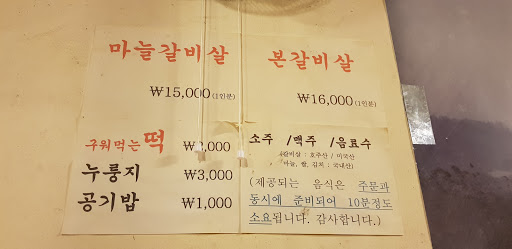 마늘갈비살
₩15,000 (1인분)
본갈비살
₩16,000 (1인분)
구워먹는 떡
누룽지 ₩3,000
공기밥 ₩1,000
소주 /맥주 /음료수
/갈비살 : 호주산 / 미국산
마늘, 쌀, 김치 : 국내산/
(제공되는 음식은 주문과
동시에 준비되어 10분정도
소요됩니다. 감사합니다.)